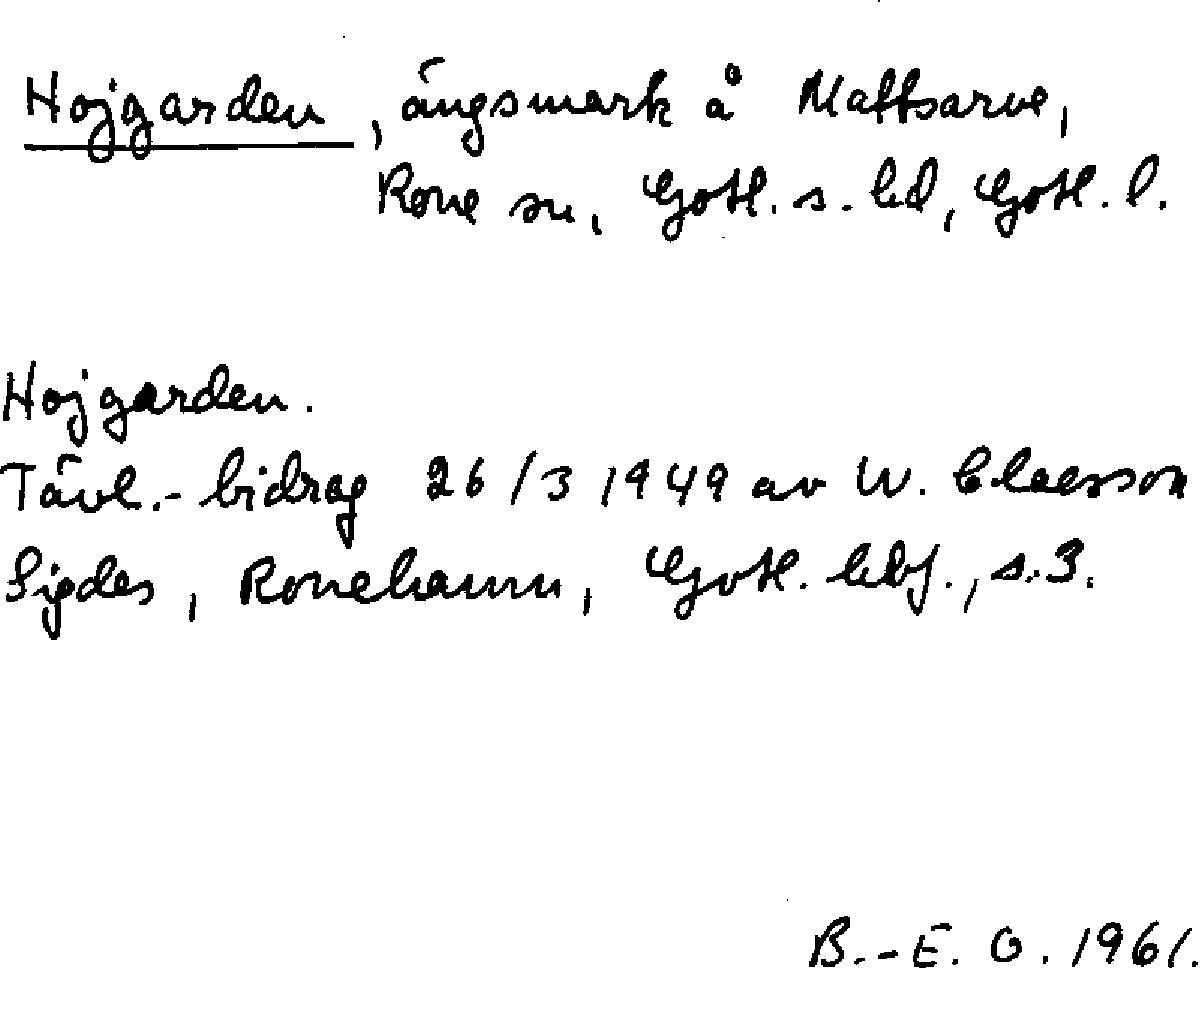 Hojgarden, ängsmark å Mattsarve,
Rone sn, Gotl. s. hd, Gotl. l.
Hojgarden.
Tävl.-bidrag 26/3 1949 av W. Claesson
Sigdes, Ronehamn, Gotl. hbf., s. 3.
B.-E. O. 1961.